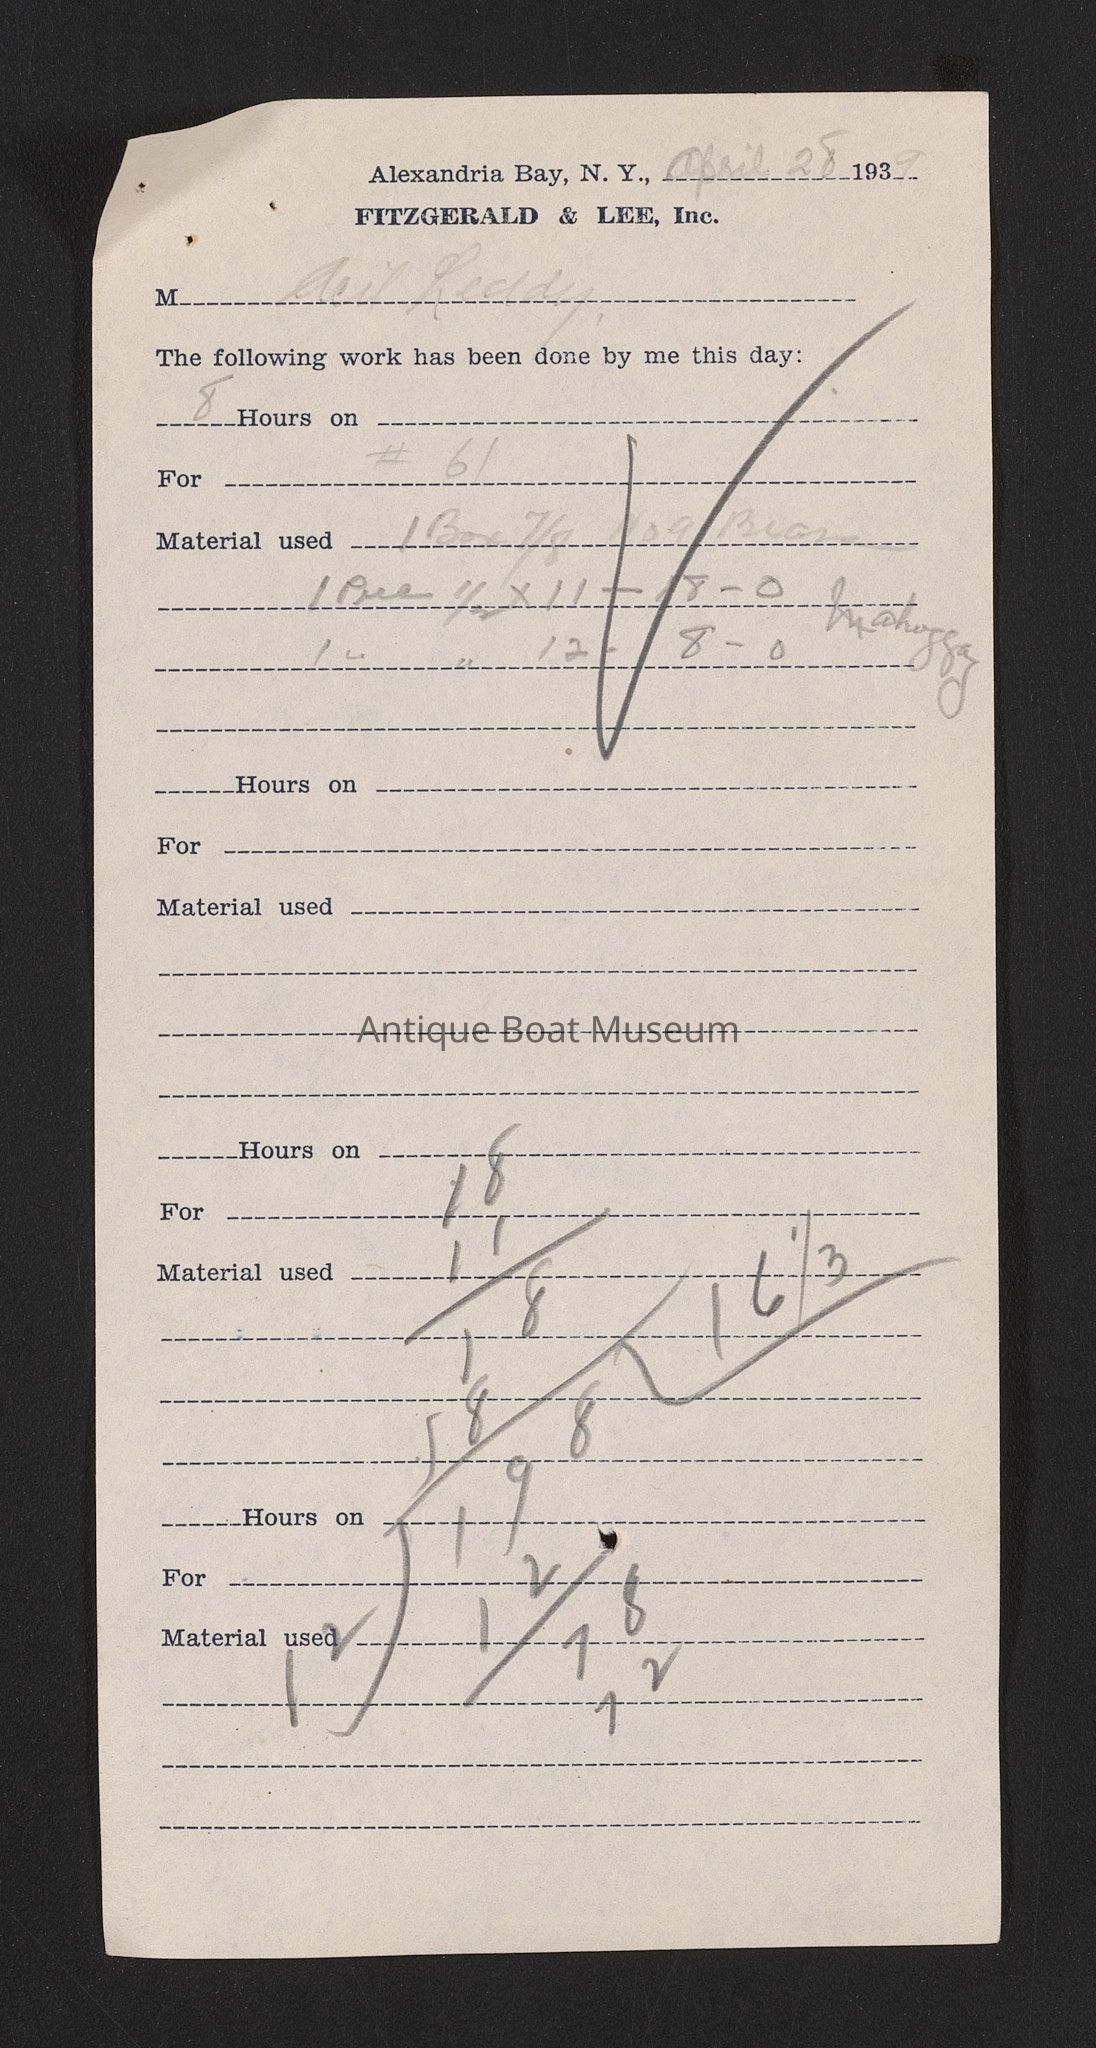 Alexandria Bay, N. Y., April 28 1939
FITZGERALD & LEE, Inc.
M Leddy.
The following work has been done by me this day:
8 Hours on
For # 61
Material used 1 Box 7/8 No 9
1 Piece 1/2 x 11 - 18 - 0 Mahoggay
1 " " 12 - 8 - 0
Hours on
For
Material used
Antique Boat Museum
Hours on
For
18
Material used
11
16 1/3
18
18
198
Hours on
19
For
12
8
Material used
12
1
12